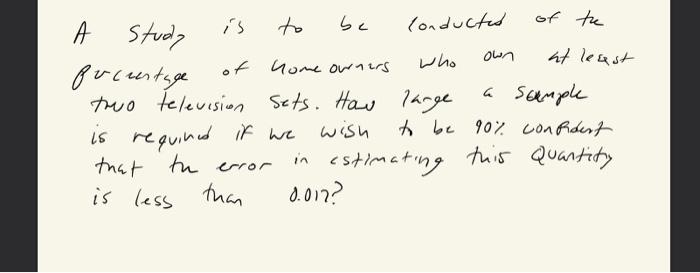 A study is to be conducted of the
percentage of homeowners who own at least
two television sets. How large a sample
is required if we wish to be 90% confident
that the error in estimating this Quantity
is less than 0.017?